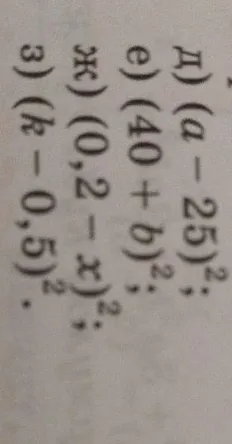 д) (a − 25)²;
е) (40 + b)²;
ж) (0,2 − x)²;
з) (k − 0,5)².